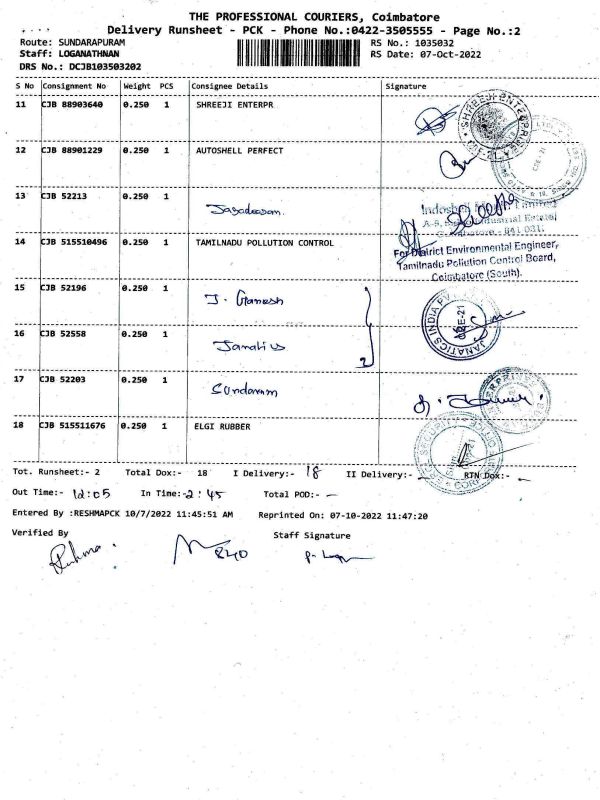 THE PROFESSIONAL COURIERS, Coimbatore
Delivery Runsheet - PCK - Phone No.:0422-3505555 - Page No.:2
Route: SUNDARAPURAM RS No.: 1035032
Staff: LOGANATHNAN RS Date: 07-Oct-2022
DRS No.: DCJB103503202
S No Consignment No Weight PCS Consignee Details Signature
11 CJB 88903640 0.250 1 SHREEJI ENTERPR
SHREEJI ENTERPRISE
12 CJB 88901229 0.250 1 AUTOSHELL PERFECT
13 CJB 52213 0.250 1
Indoshell Limited
Industrial Estate
Coimbatore - 641 031.
14 CJB 515510496 0.250 1 TAMILNADU POLLUTION CONTROL
For District Environmental Engineer,
Tamilnadu Pollution Control Board,
Coimbatore (South).
15 CJB 52196 0.250 1 J. Ganesh
JANATICS INDIA
CBE-21
16 CJB 52558 0.250 1 Janatics
2
17 CJB 52203 0.250 1 Sundaram
18 CJB 515511676 0.250 1 ELGI RUBBER
SECURITY
Tot. Runsheet:- 2 Total Dox:- 18 I Delivery:- 18 II Delivery:- - RTN Dox:- -
Out Time:- 12:05 In Time:- 2:45 Total POD:- -
Entered By :RESHMAPCK 10/7/2022 11:45:51 AM Reprinted On: 07-10-2022 11:47:20
Verified By Staff Signature
840